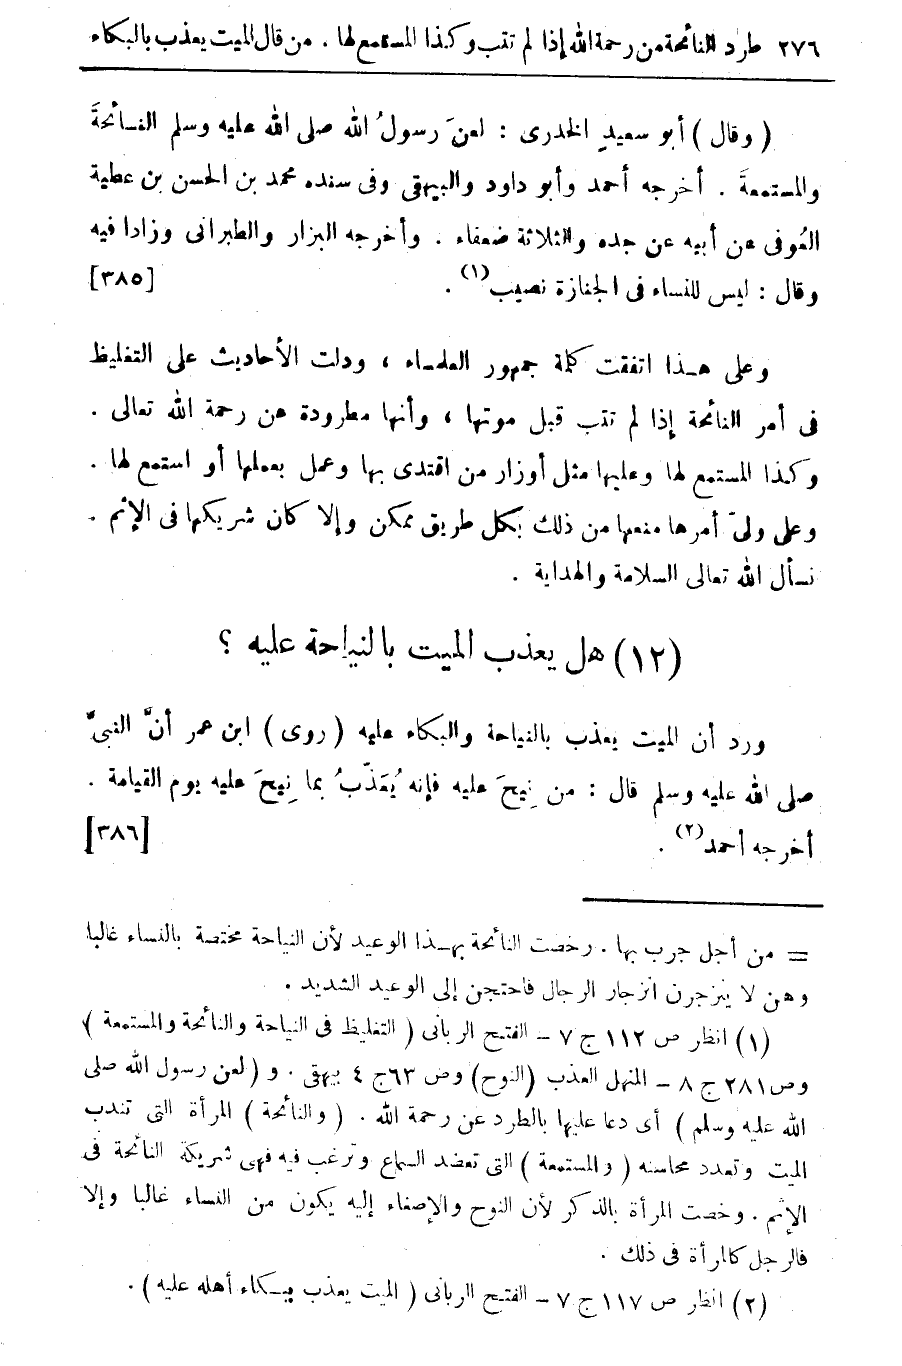 ٢٧٦ طرد النائحة من رحمة الله إذا لم تتب وكذا المستمع لها . من قال الميت يعذب بالبكاء
( وقال ) أبو سعيدٍ الخدرى : لعنَ رسولُ الله صلى الله عليه وسلم النـائحةَ
والمستمعةَ . أخرجه أحمد وأبو داود والبيهقى وفى سنده محمد بن الحسن بن عطية
العُوفى عن أبيه عن جده والثلاثة ضعفاء . وأخرجه البزار والطبرانى وزادا فيه
وقال : ليس للنساء فى الجنازة نصيب(١) . [٣٨٥]
وعلى هـذا اتفقت كلمة جمهور العلمـاء ، ودلت الأحاديث على التغليظ
فى أمر النائحة إذا لم تتب قبل موتها ، وأنها مطرودة عن رحمة الله تعالى .
وكذا المستمع لها وعليها مثل أوزار من اقتدى بها وعمل بعملها أو استمع لها .
وعلى ولىّ أمرها منعها من ذلك بكل طريق ممكن وإلا كان شريكها فى الإثم .
نسأل الله تعالى السلامة والهداية .
(١٢) هل يعذب الميت بالنياحة عليه ؟
ورد أن الميت يعذب بالنياحة والبكاء عليه ( روى ) ابن عمر أنَّ النبىَّ
صلى الله عليه وسلم قال : من نِيحَ عليه فإنه يُعَذّبُ بما نِيحَ عليه يوم القيامة .
أخرجه أحمد(٢) . [٣٨٦]
= من أجل جرب بها . رخصت النائحة بهـذا الوعيد لأن النياحة مختصة بالنساء غالبا
وهن لا ينزجرن انزجار الرجال فاحتجن إلى الوعيد الشديد .
(١) انظر ص ١١٢ ج ٧ – الفتح الربانى ( التغليظ فى النياحة والنائحة والمستمعة )
وص ٢٨١ ج ٨ – المنهل العذب (النوح) وص ٦٣ ج ٤ بيهقى . و ( لعن رسول الله صلى
الله عليه وسلم ) أى دعا عليها بالطرد عن رحمة الله . ( والنائحة ) المرأة التى تندب
الميت وتعدد محاسنه ( والمستمعة ) التى تقصد السماع وترغب فيه فهى شريكة النائحة فى
الإثم . وخصت المرأة بالذكر لأن النوح والإصغاء إليه يكون من النساء غالبا وإلا
فالرجل كالمرأة فى ذلك .
(٢) انظر ص ١١٧ ج ٧ – الفتح الربانى ( الميت يعذب ببـكاء أهله عليه ) .